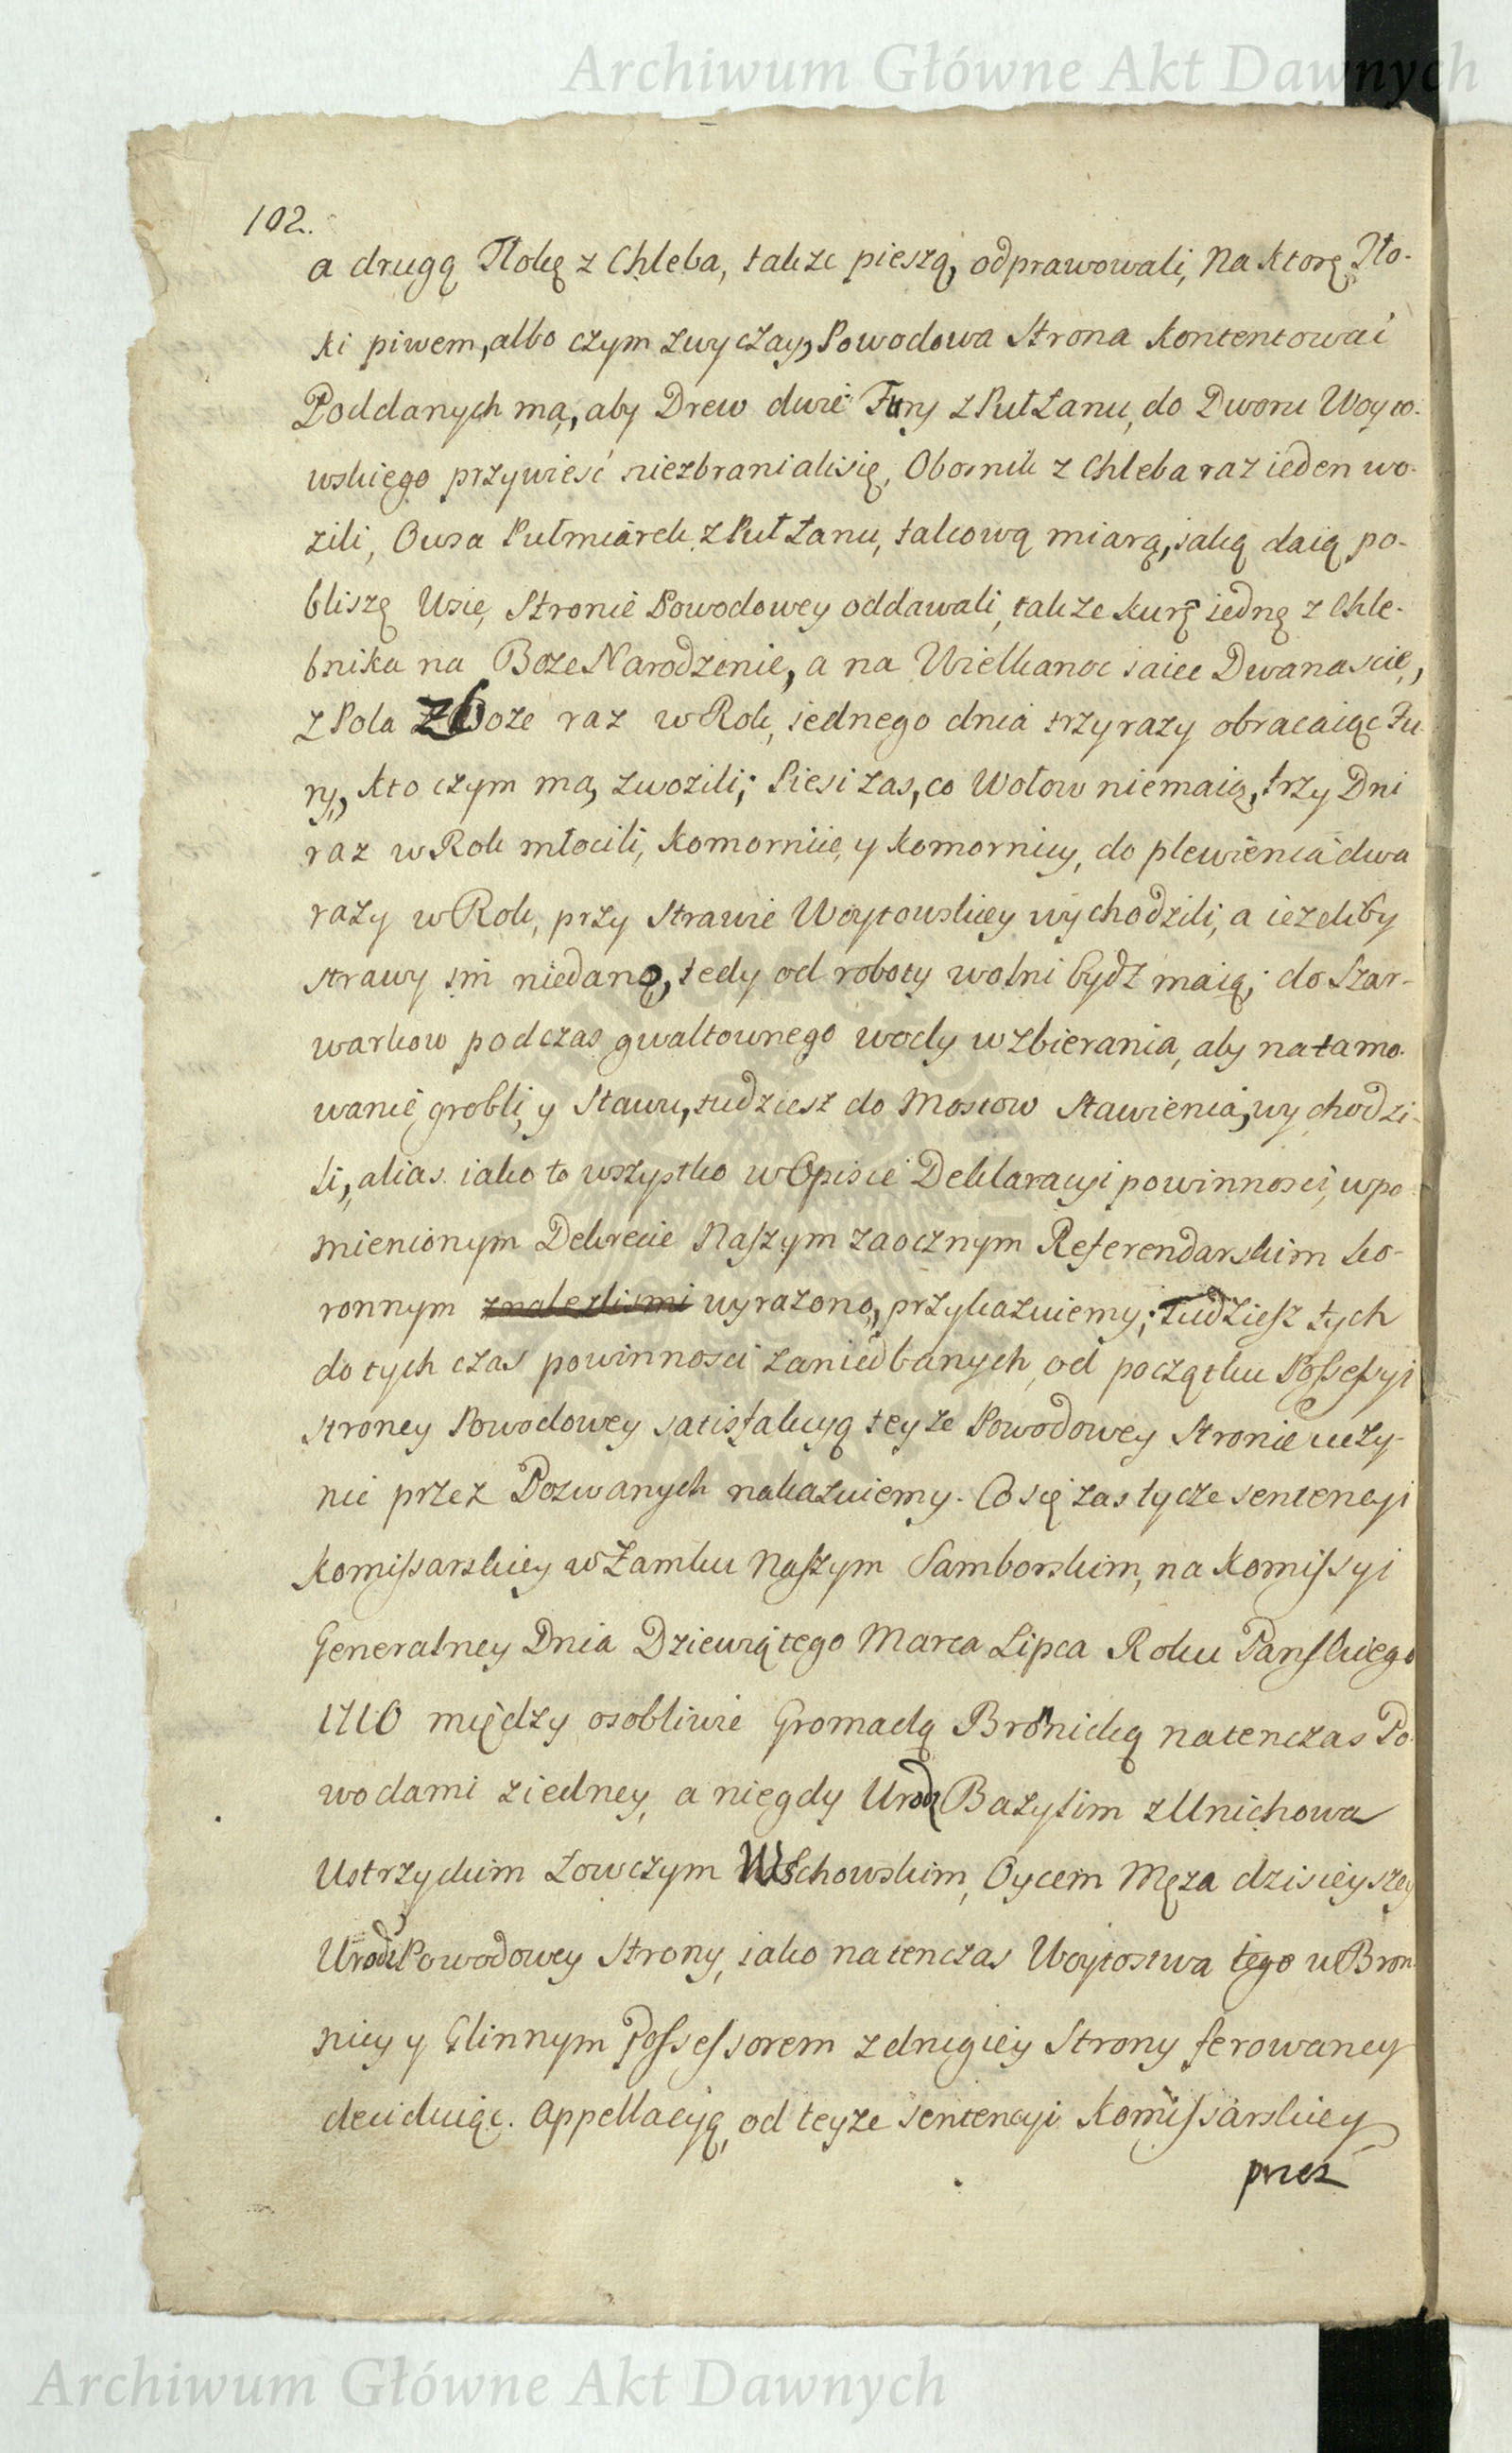 Archiwum Główne Akt Dawnych
102.
a drugą Tłokę z Chleba, także pieszą, odprawowali, Na ktorę Tło-
ki piwem, albo czym zwyczay, Powodowa Strona kontentować
Poddanych ma, aby Drew dwie Fury z Puł Łanu, do Dworu Woyto-
wskiego przywieść niezbranialisię, Obornik z Chleba raz ieden wo-
zili, Owsa Pułmiarek z Puł Łanu, takową miarą, iaką daią po-
bliszę Wsie, Stronie Powodowey oddawali, także kurę iednę z Chle-
bnika na Boże Narodzenie, a na Wielkanoc iaiec Dwanascie,
z Pola Zboże raz w Rok, iednego dnia trzy razy obracaiąc Fu-
ry, kto czym ma, zwozili; Piesi zas, co Wołow niemaią, trzy Dni
raz w Rok młocili, komornice, y komornicy, do plewienia dwa
razy w Rok, przy Strawie Woytowskiey wychodzili, a ieżeliby
strawy im niedano, tedy od roboty wolni bydź maią; do Szar-
warkow podczas gwaltownego wody wzbierania, aby na tamo-
wanie grobli, y Stawu, tudziesz do Mostow Stawienia, wychodzi-
li, alias iako to wszystko w Opisie Deklaracyi powinnosci, wpo-
mienionym Dekrecie Naszym zaocznym Referendarskim ko-
ronnym znalezlismi wyrażono, przykazuiemy; tudziesz tych
do tych czas powinnosci zaniedbanych, od początku Possessyi
strony Powodowey satisfakcyą teyże Powodowey Stronie uczy-
nić przez Pozwanych nakazuiemy. Co się zas tycze sentencyi
Komissarskiey w Zamku Naszym Samborskim, na Komissyi
Generalney Dnia Dziewiątego Marca Lipca Roku Panskiego
1710 między osobliwie Gromadą Bronicką natenczas Po-
wodami ziedney, a niegdy Urodz Bazylim z Unichowa
Ustrzyckim Łowczym Wschowskim, Oycem Męża dzisieyszey
Urodz Powodowey Strony, iako natenczas Woytostwa tego w Bron-
nicy y Glinnym Possessorem z drugiey Strony ferowaney
deciduiąc. Appellacyą, od teyże sentencyi Komissarskiey
przez
Archiwum Główne Akt Dawnych